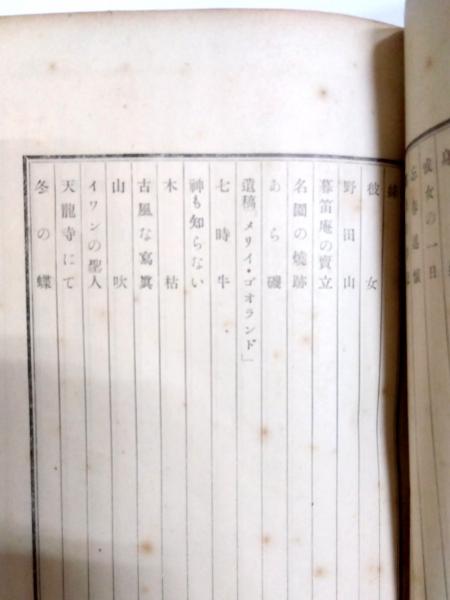 彼女の一日
彼女
野田山
暮笛庵の賣立
名園の燒跡
あら磯
遺稿「メリイ・ゴオランド」
七時牛
神も知らない
木枯
古風な寫眞
山吹
イワンの聖人
天龍寺にて
冬の蝶